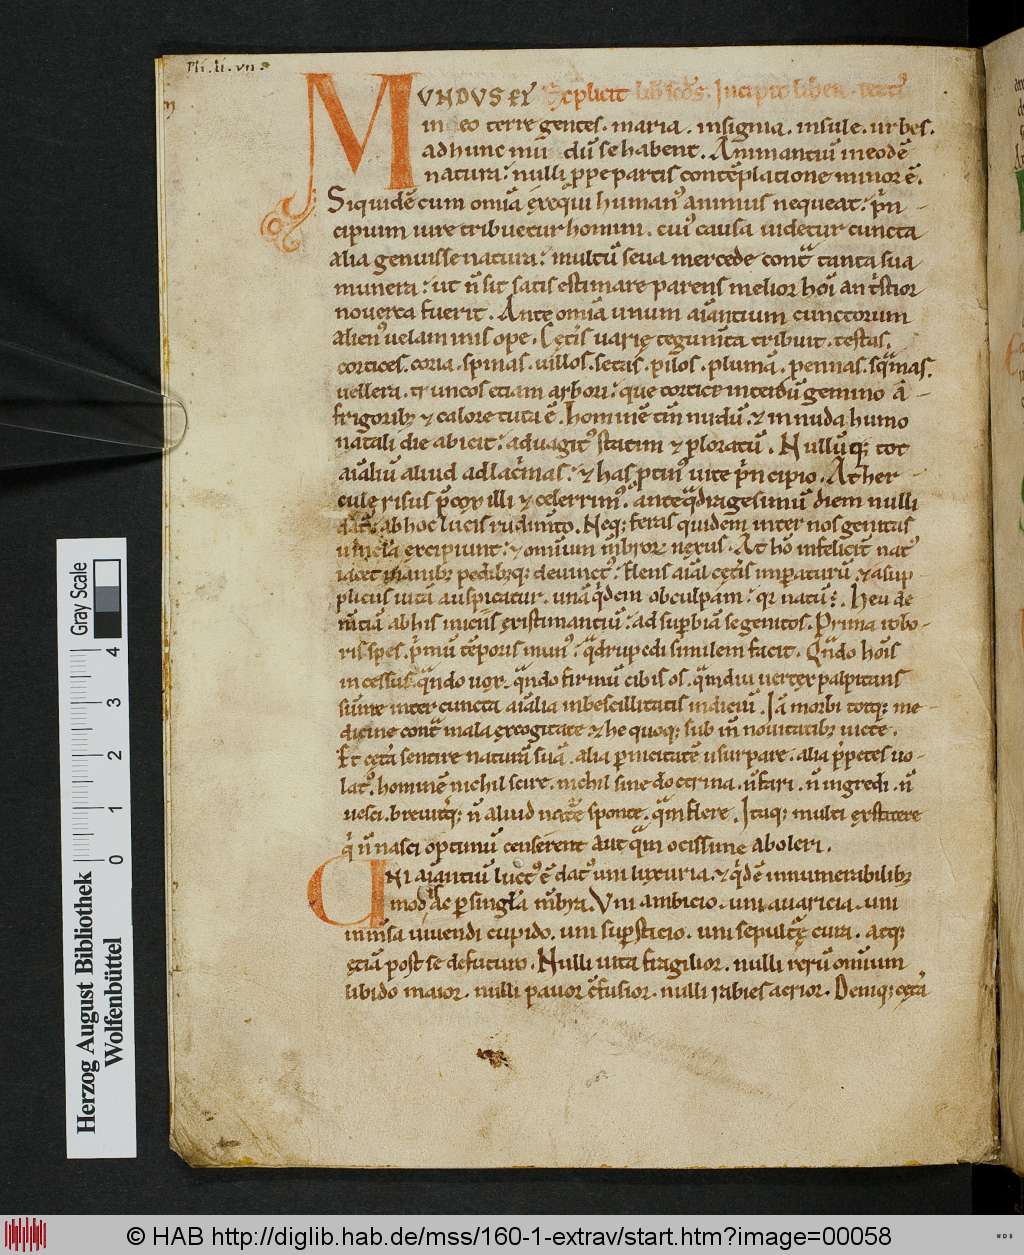 Pli. li. vii.
MUNDUS ET Explicit lib scds. Incipit liber tertius
in eo terre gentes. maria. insignia. insule. urbes.
ad hunc mū dū se habent. Animantiū in eodē
natura: nulli ꝓpe partis contēplatione minor ē.
Siquidē cum omīa exeq̇ui human᾽ animus nequeat: pͥn-
cipium iure tribuetur homini. cui᾽ causa uidetur cuncta
alia genuisse natura: multū seua mercede contᷓ tanta sua
munera: ut n̄ sit satis estimare parens melior hoī an tͥstior
nouerca fuerit. Ante omīa unum aīantium cunctorum
alien᾽ uelat uminis ope. Cęteͥs uarię tegumta tribuit. testas.
cortices. coria. spinas. uillos. setas. pilos. plumā. pennas. sqᷓmas.
uellera. truncos etiam arbori: que cortice interdū gemino ā-
frigorib; & calore tuta ē. Hominē tm̄ nudū. & in nuda humo
natali die abicit: ad uagit᾽ statim & ploratū. Nullūq; tot
aīaliū aliud ad lacͥmas: & has ꝓtin᾽ uite pͥncipio. At her-
culę risus p̄cox illi & celerrim᾽. ante qᷓdragesimū diem nulli
dat᾽. ab hoc lucis rudimto. Neq; feras quidem inter nos genitas
uincla excipiunt: & omnium m̄broꝝ nexus. At hō infelicit nat᾽
iacet manib; pedib;q; deuinct᾽: flens aīal cęteͥs impaturū. & a sup
pliciis uitā auspicatur. unā qͥdem ob culpam: qꝛ natū:. Heu de
m̄tiā ab his iniciis existimantiū: ad supbiā se genitos. Prima robo-
ris spes. pͥmū tēporis mun᾽: qᷓdrupedi similem facit. Qn̄do hoīs
incessus. qn̄do uox. qn̄do firmū cibis os. qᷓmdiu uertex palpitans
sūme inter cuncta aīalia inbescillitatis indiciū. Iā morbi totq; me-
dicine contᷓ mala excogitate & he quoq; sub in̄ nouitatib; uicte.
Et cętͣ sentire naturā suā. alia pnicitatē usurpare. alia pͥpetes uo-
lat᾽. hominē nichil scire. nichil sine doctrina. n̄ fari. n̄ ingredi. n̄
uesci. breuitq; n̄ aliud naturę sponte. qᷓm flere. Itaq; multi exstitere
qͥ n̄ nasci optimū censerent aut qᷓm ocissime aboleri.
UNI aīantiū luct᾽ ē dat᾽ uni luxuria. & qͥdē innumerabilib;
modis ac p singła m̄bra. Uni ambicio. uni auaricia. uni
inm̄sa uiuendi cupido. uni supsticio. uni sepultᷓę cura. atq;
etiā post se de futuro. Nulli uita fragilior. nulli rerū omnium
libido maior. nulli pauor c̄fusior. nulli rabies acrior. Deniq; cętͣ
Gray Scale
0 1 2 3 4
Herzog August Bibliothek
Wolfenbüttel
© HAB http://diglib.hab.de/mss/160-1-extrav/start.htm?image=00058